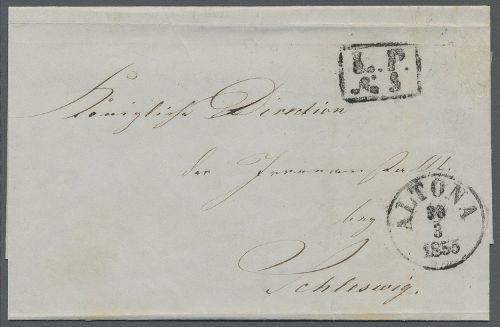 L. P.
№ 3
Königliche Direction
der Irrenanstalt
bey
Schleswig.
ALTONA
30
3
1855